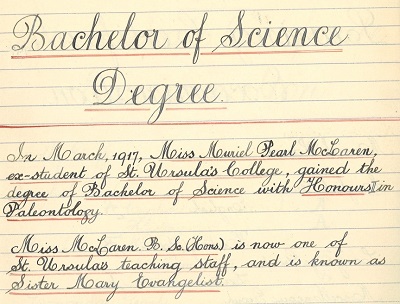 Bachelor of Science
Degree.
In March, 1917, Miss Muriel Pearl McLaren,
ex-student of St. Ursula's College, gained the
degree of Bachelor of Science with Honours I in
Paleontology.
Miss McLaren. B. Sc. (Hons) is now one of
St. Ursula's teaching staff, and is known as
Sister Mary Evangelist.